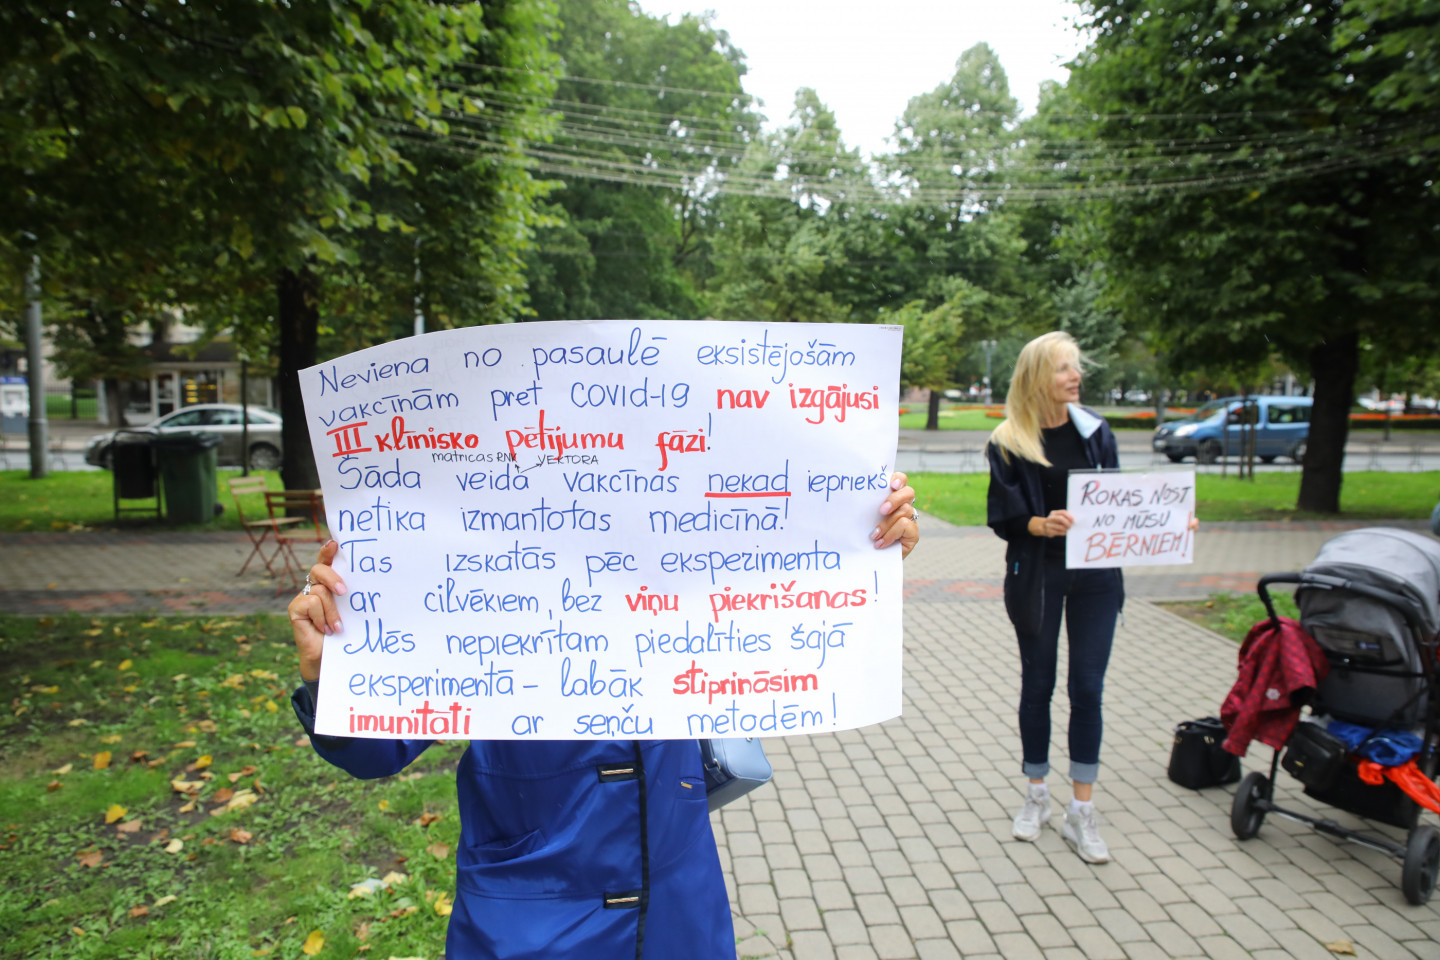 Neviena no pasaulē eksistējošām
vakcīnām pret COVID-19 nav izgājusi
III klīnisko pētījumu fāzi!
matricas RNK VEKTORA
Šāda veida vakcīnas nekad iepriekš
netika izmantotas medicīnā!
Tas izskatās pēc eksperimenta
ar cilvēkiem, bez viņu piekrišanas!
Mēs nepiekrītam piedalīties šajā
eksperimentā – labāk stiprināsim
imunitāti ar seņču metodēm!
ROKAS NOST
NO MŪSU
BĒRNIEM!